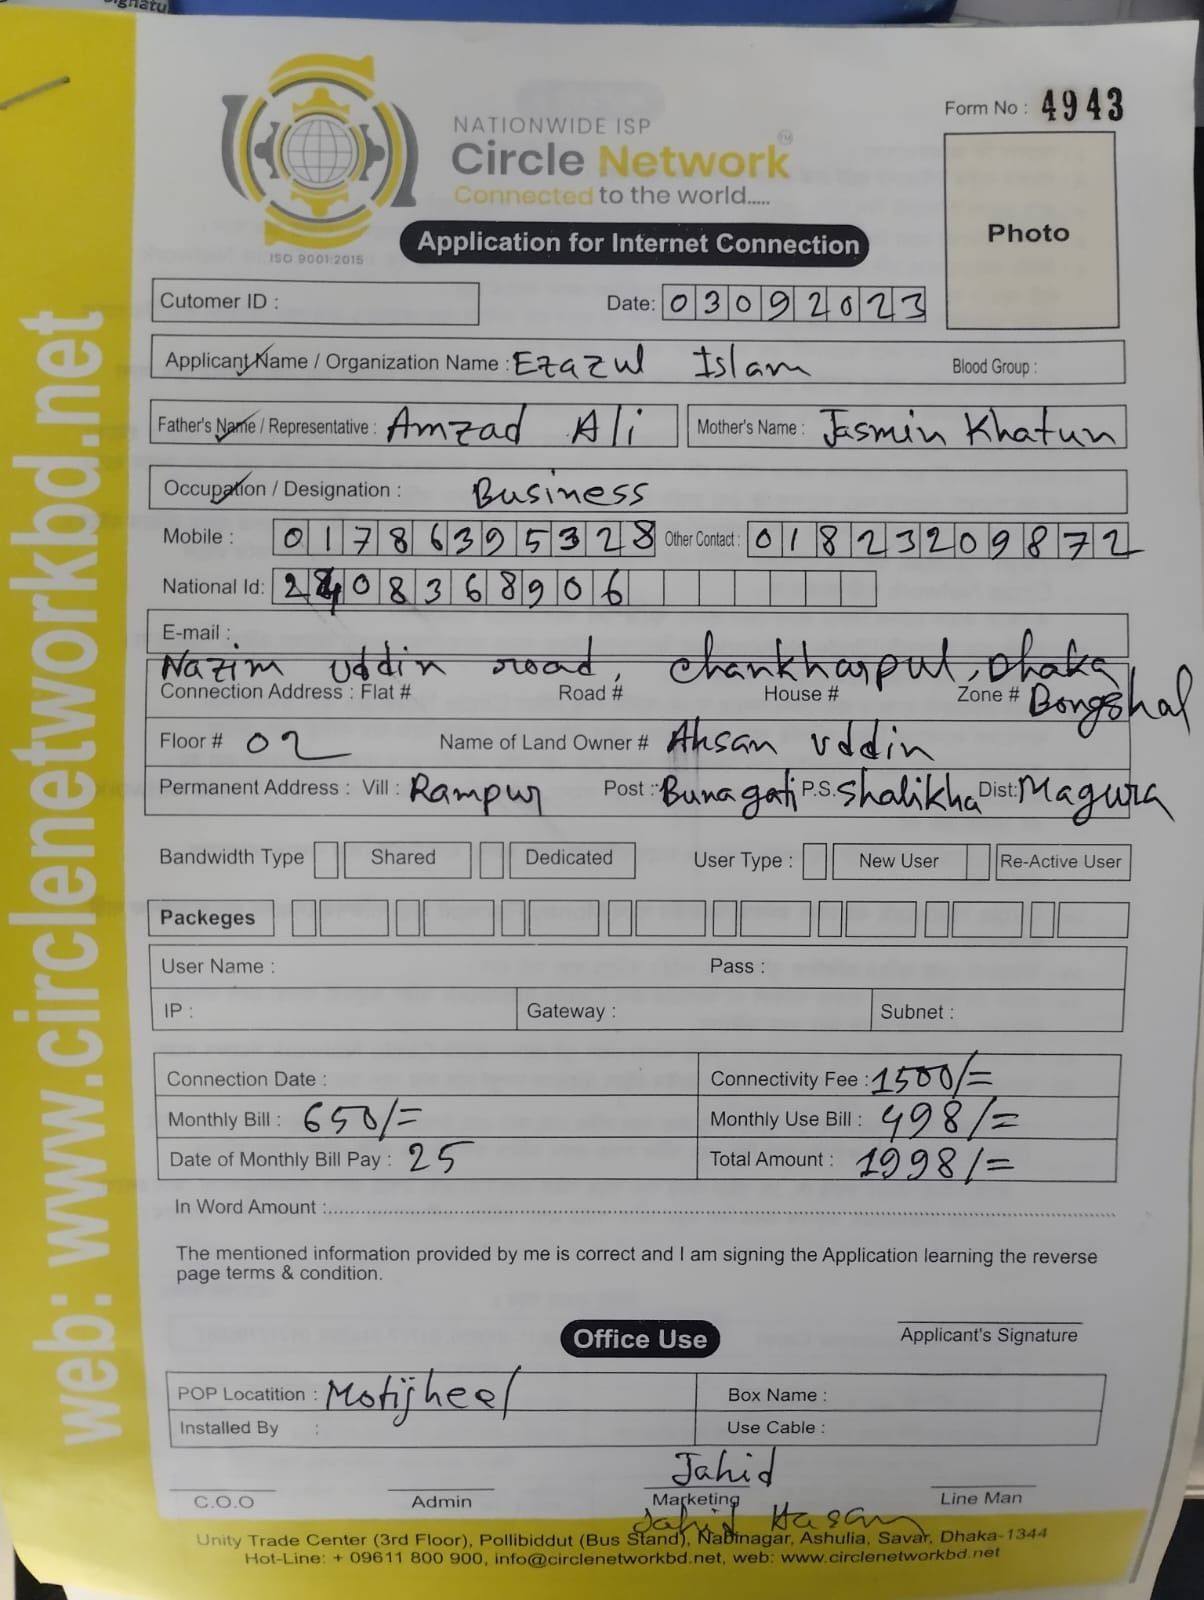 Form No : 4943
NATIONWIDE ISP
Circle Network TM
Connected to the world.....
ISO 9001:2015
Application for Internet Connection
Photo
Cutomer ID :
Date: 03092023
Applicant Name / Organization Name : Ezazul Islam Blood Group :
Father's Name / Representative : Amzad Ali Mother's Name : Jasmin Khatun
Occupation / Designation : Business
Mobile : 01786395328 Other Contact : 01823209872
National Id: 2408368906
E-mail :
Nazim Uddin road, Chankharpul, Dhaka
Connection Address : Flat # Road # House # Zone # Bongshal
Floor # 02 Name of Land Owner # Ahsan Uddin
Permanent Address : Vill : Rampur Post : Bunagati P.S. Shalikha Dist: Magura
Bandwidth Type Shared Dedicated User Type : New User Re-Active User
Packeges
User Name : Pass :
IP : Gateway : Subnet :
Connection Date : Connectivity Fee : 1500/=
Monthly Bill : 650/= Monthly Use Bill : 498/=
Date of Monthly Bill Pay : 25 Total Amount : 1998/=
In Word Amount :
The mentioned information provided by me is correct and I am signing the Application learning the reverse
page terms & condition.
Applicant's Signature
Office Use
POP Locatition : Motijheel Box Name :
Installed By : Use Cable :
Jahid
C.O.O Admin Marketing Line Man
Jahid Hasan
Unity Trade Center (3rd Floor), Pollibiddut (Bus Stand), Nabinagar, Ashulia, Savar, Dhaka-1344
Hot-Line: + 09611 800 900, info@circlenetworkbd.net, web: www.circlenetworkbd.net
web: www.circlenetworkbd.net